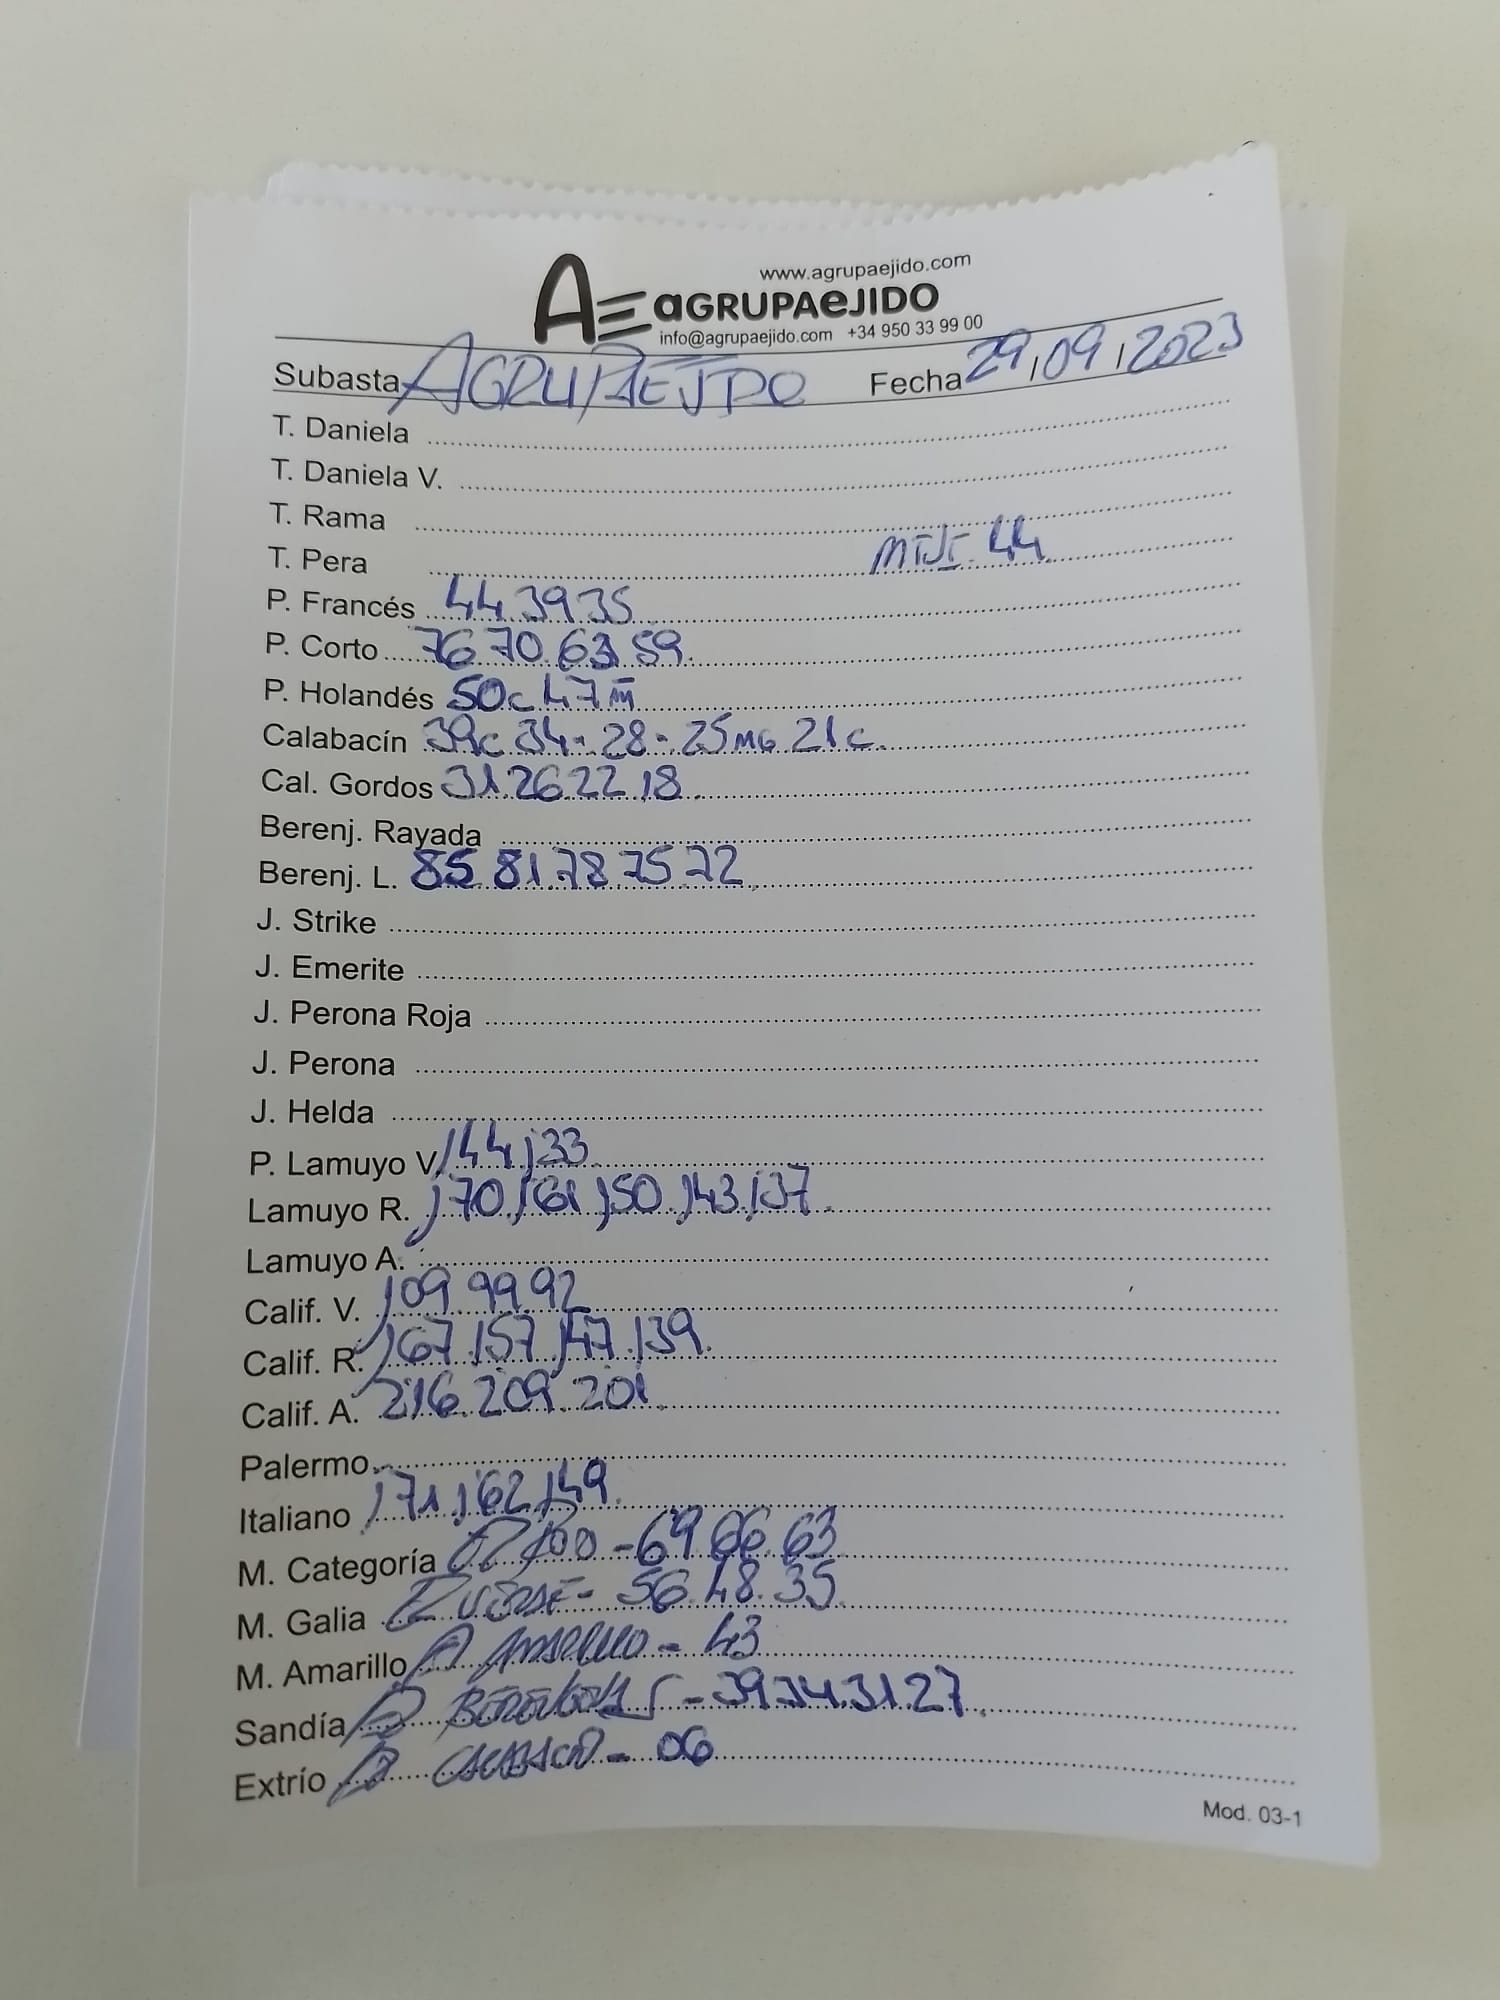 www.agrupaejido.com
AE aGRUPAeJIDO
info@agrupaejido.com +34 950 33 99 00
Subasta AGRUPAEJIDO Fecha 29/09/2023
T. Daniela
T. Daniela V.
T. Rama
T. Pera 44
P. Francés 44 39 35
P. Corto 76 70 63 59
P. Holandés 50c 47 m
Calabacín 39c 34- 28- 25 MG 21c
Cal. Gordos 31 26 22 18
Berenj. Rayada
Berenj. L. 85 81 78 75 72
J. Strike
J. Emerite
J. Perona Roja
J. Perona
J. Helda
P. Lamuyo V. 144 133
Lamuyo R. 170 161 150 143 137
Lamuyo A.
Calif. V. 109 99 92
Calif. R. 167 157 147 139
Calif. A. 216 209 201
Palermo
Italiano 171 162 149
M. Categoría - 69 66 63
M. Galia VERDE - 56 48 35
M. Amarillo P AMARILLO - 43
Sandía - 39 34 31 27
Extrío - 06
Mod. 03-1